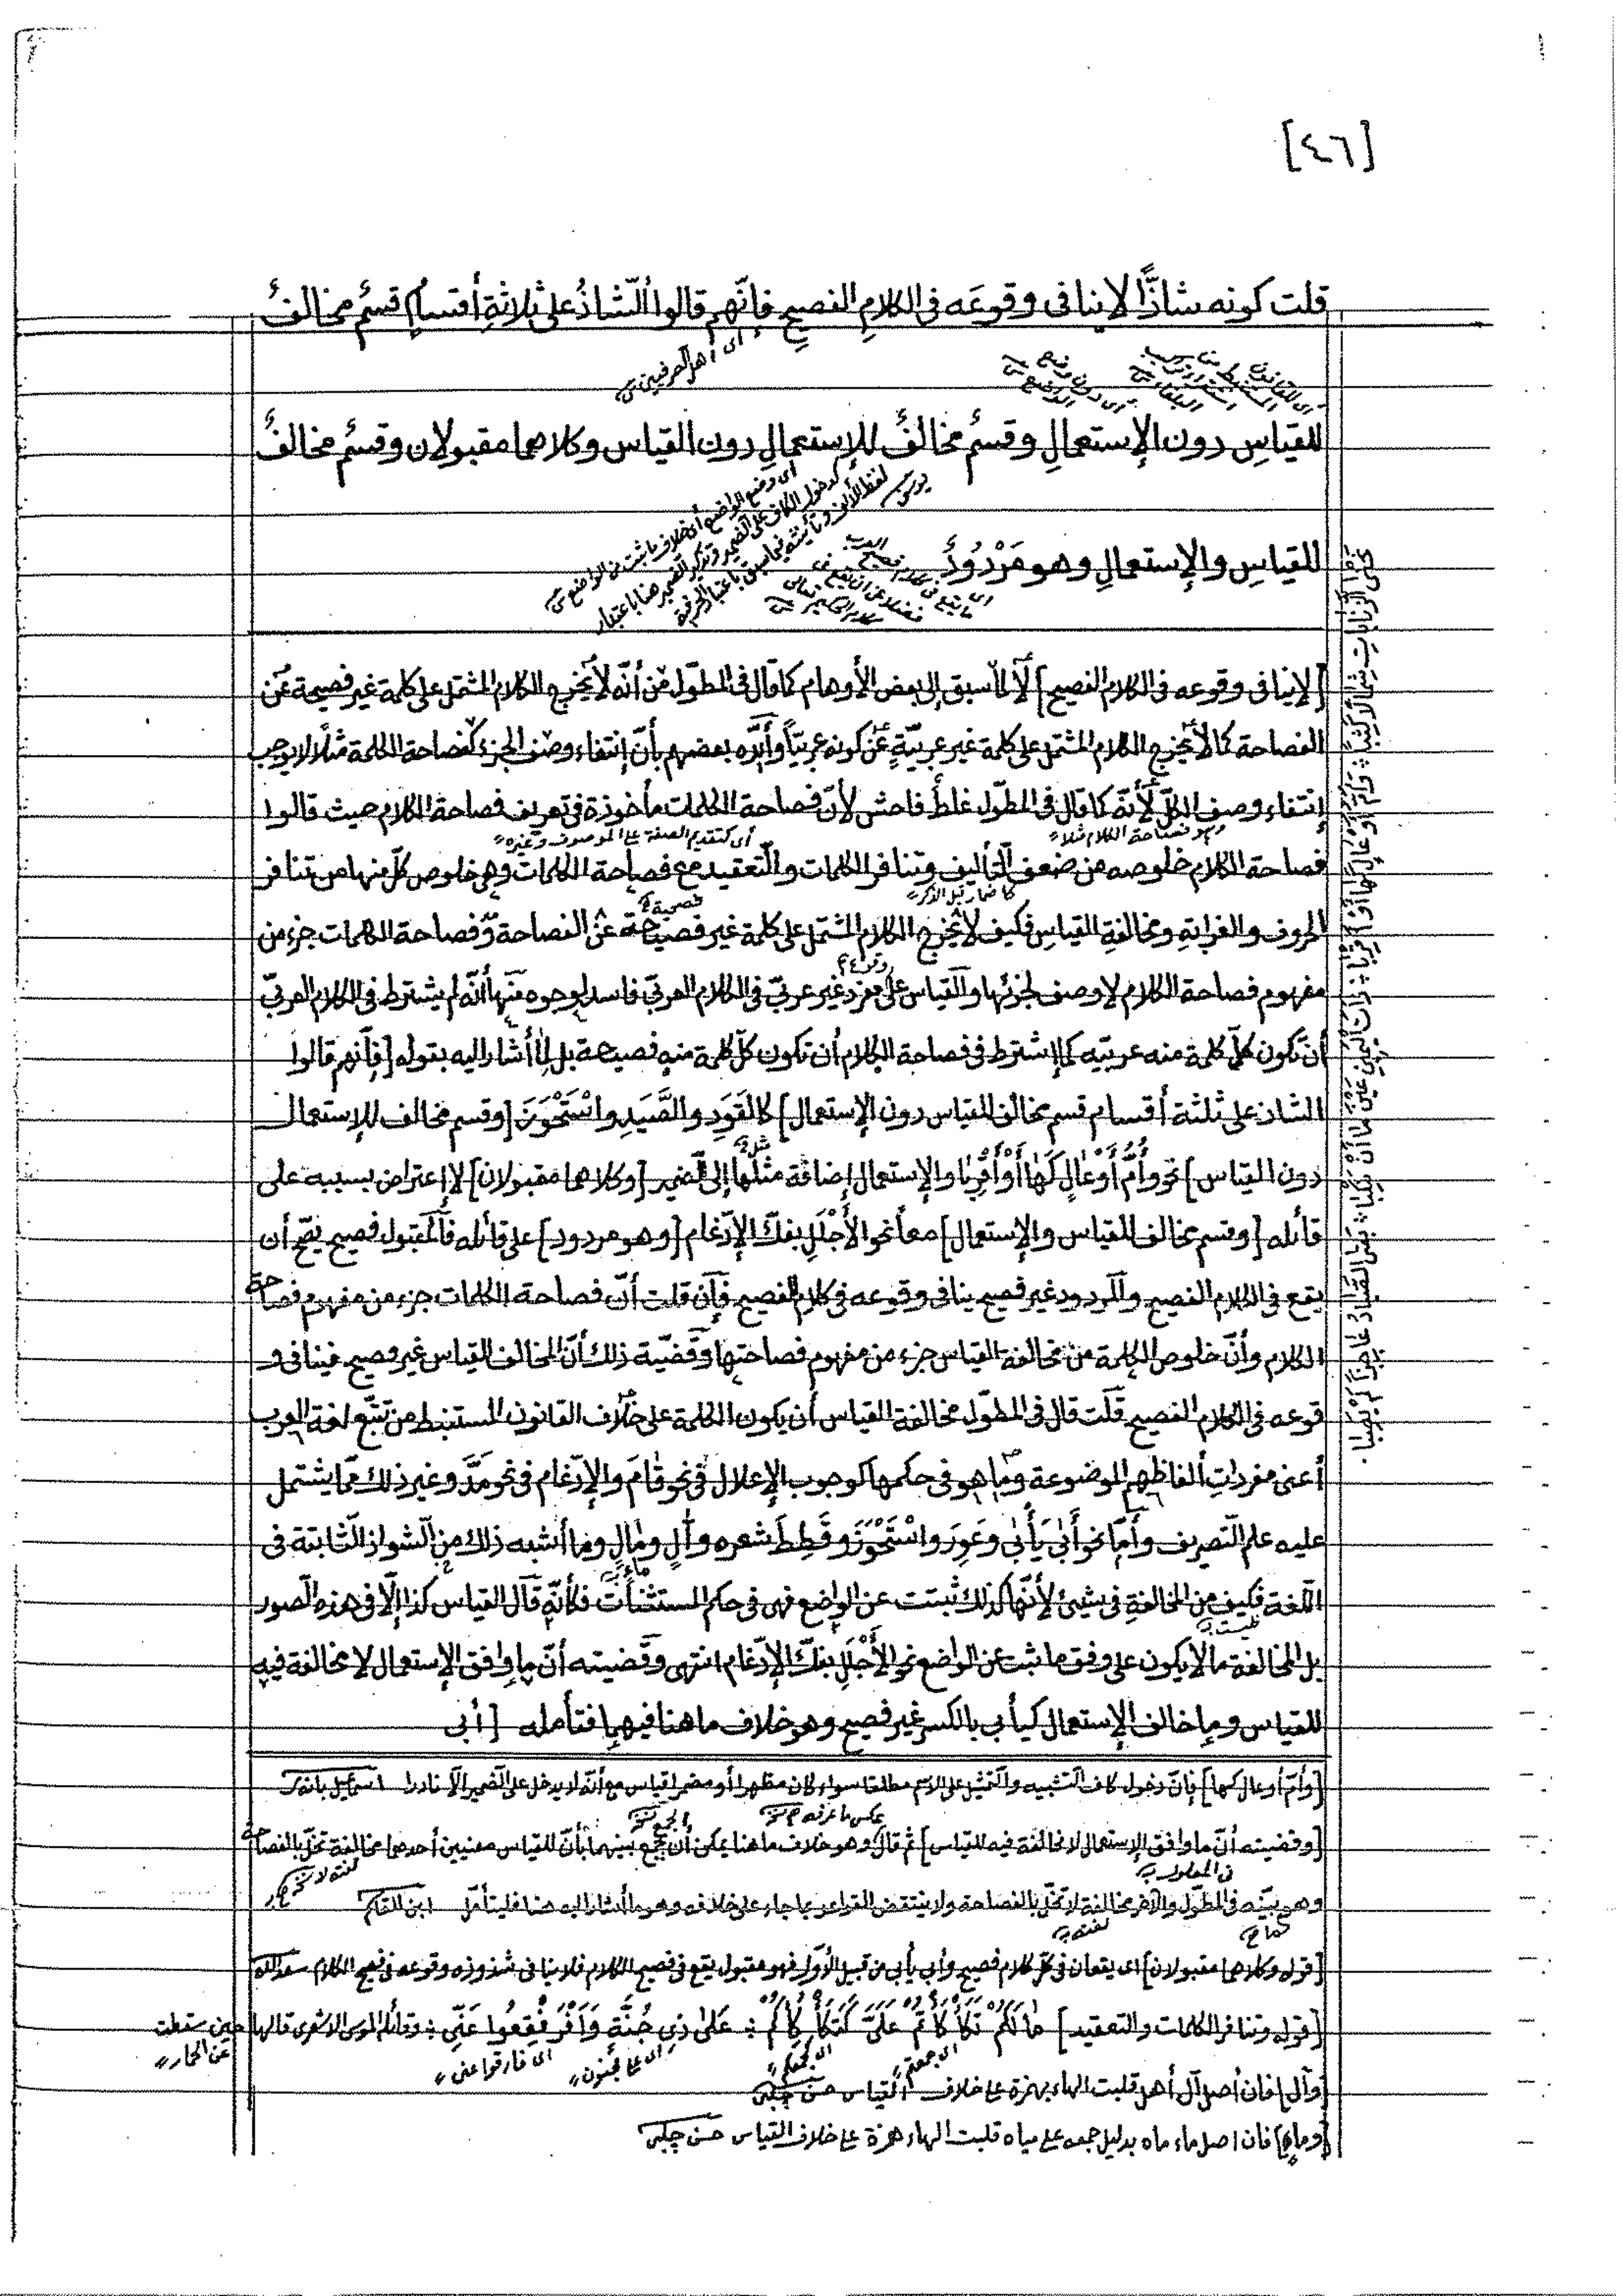 [٤٦]
قلت كونه شاذًّا لا ينافى وقوعَه فى الكلامِ الفصيحِ فإنّهم قالوا ألشّاذُ على ثلاثةِ أقسامٍ قسمٌ مخالفٌ
أى أهل الصرفيين
للقياسِ دون الإستعمالِ وقسمٌ مخالفٌ للإستعمالِ دون القياس وكلاهما مقبولان وقسمٌ مخالفٌ
للقياس والإستعمالِ وهو مَرْدُودٌ
[لا ينافى وقوعه فى الكلام الفصيح] لا لما سبق إلى بعض الأوهام كما قال فى المطوّل من أنّه لا يخرج الكلام المشتمل على كلمة غير فصيحة عن
الفصاحة كما لا يخرج الكلام المشتمل على كلمة غير عربيّةٍ عن كونه عربيّاً وأيّده بعضهم بأنّ إنتفاء وصف الجزء كفصاحة الكلمة مثلًا لا يوجب
إنتفاء وصف الكلّ لأنّه كما قال فى المطوّل غلط فاحش لأنّ فصاحة الكلمات مأخوذة فى تعريف فصاحة الكلام حيث قالوا
وهو فصاحة الكلام مثلا أى كتقديم الصفة على الموصوف وغيره
فصاحة الكلام خلوصه من ضعف التّأليف وتنافر الكلمات والتّعقيد مع فصاحة الكلمات وهى خلوص كلّ منها من تنافر
كاضمار قبل الذكر
الحروف والغرابةِ ومخالفةِ القياسِ فكيف لا يخرج الكلام المشتمل على كلمة غير فصيحة عن الفصاحة وفصاحة الكلمات جزء من
مفهوم فصاحة الكلام لا وصف لجزئها والقياس على مفرد غير عربىّ فى الكلام العربىّ فاسد لوجوه منها أنّه لم يشترط فى الكلام العربىّ
أن تكون كلّ كلمة منه عربيّه كما إشترط فى فصاحة الكلام أن تكون كلّ كلمة منه فصيحة بل لما أشار اليه بقوله [فإنّهم قالوا
الشاذ على ثلثة أقسام قسم مخالف للقياس دون الإستعمال] كالقَوَدِ والصَّيَدِ واسْتَحْوَذَ [وقسم مخالف للإستعمال
دون القياس] نحو وأُمُّ أَوْعَالٍ كَهَا أَوْ أَقْرَبَا والإستعمال إضافة مثلها إلى الضمير [وكلاهما مقبولان] لا إعتراض بسببه على
قائله [وقسم مخالف للقياس والإستعمال] معاً نحو الأَجْلَلِ بفكّ الإدّغام [وهو مردود] على قائله فالمقبول فصيح يصحّ أن
يقع فى الكلام الفصيح والمردود غير فصيح ينافى وقوعه فى كلام الفصيح فإن قلت أنّ فصاحة الكلمات جزء من مفهوم فصاحة
الكلام وأنّ خلوص الكلمة من مخالفة القياس جزء من مفهوم فصاحتها وقضيّة ذلك أنّ المخالف للقياس غير فصيح فينافى و
قوعه فى الكلام الفصيح قلت قال فى المطوّل مخالفة القياس أن يكون الكلمة على خلاف القانون المستنبط من تتبّع لغة العرب
أعنى مفرداتِ ألفاظهم الموضوعة وما هو فى حكمها كوجوب الإعلال فى نحو قامَ والإدّغام فى نحو مَدَّ وغير ذلك ممّا يشتمل
عليه علم التّصريف وأمّا نحو أَبٰى يَأْبٰى وعَوِرَ واسْتَحْوَذَ وقَطِطَ شعره وآلٍ ومالٍ وما أشبه ذلك من الشّواذ الثّابتة فى
اللّغة فليس من المخالفةِ فى شيئ لأنّها كذلك ثبتت عن الواضع فهى فى حكم المستثنات فكأنّه قال القياس كذا إلّا فى هذه الصّور
بل المخالفة ما لا يكون على وفق ما ثبت عن الواضع نحو الأَجْلَلِ بفكّ الإدّغام انتهى وقضيته أنّ ما وافق الإستعمال لا مخالفة فيه
للقياس وما خالف الإستعمال كيأبى بالكسر غير فصيح وهو خلاف ما هنا فيهما فتأمله [أبى
[وأُمّ أوعال كها] فإنّ دخول كاف التشبيه والتمثيل على الاسم مطلقا سواء كان مظهرا أو مضمرا قياس مع أنّه لا يدخل على الضمير الّا نادرا
[وقضيته أنّ ما وافق الإستعمال لا مخالفة فيه للقياس] ثم قال وهو خلاف ما هنا يمكن أن يجمع بينهما بأنّ للقياس معنيين أحدهما مخالفة تخلّ بالفصاحة
وهو بيّنه فى المطوّل والآخر مخالفة لا تخلّ بالفصاحة ولا ينتقض القواعد بما جاء على خلافه وهو ما أشار اليه هنا فليتأمّل ابن القاسم
[قوله وكلاهما مقبولان] اى يقعان فى كلّ كلام فصيح وأبى يأبى من قبيل الأوّل فهو مقبول يقع فى فصيح الكلام فلا ينافى شذوذه وقوعه فى فصيح الكلام سعد الله
[قوله وتنافر الكلمات والتعقيد] مٰا لَكُمْ تَكَأْكَأْتُمْ عَلَىَّ كَتَكَأْكُأِكُمْ : عَلٰى ذِى جُنَّةٍ وَافْرَنْقِعُوا عَنِّى : قالها حين سقطت
عن الحمار
اى جمعتم اى كجمعكم اى على مجنون اى فارقوا عنى
[وآل] فان أصل آل أهل قلبت الهاء بهمزة على خلاف القياس حسن چلبى
[وماء] فان اصل ماء ماه بدليل جمعه على مياه قلبت الهاء همزة على خلاف القياس حسن چلبى